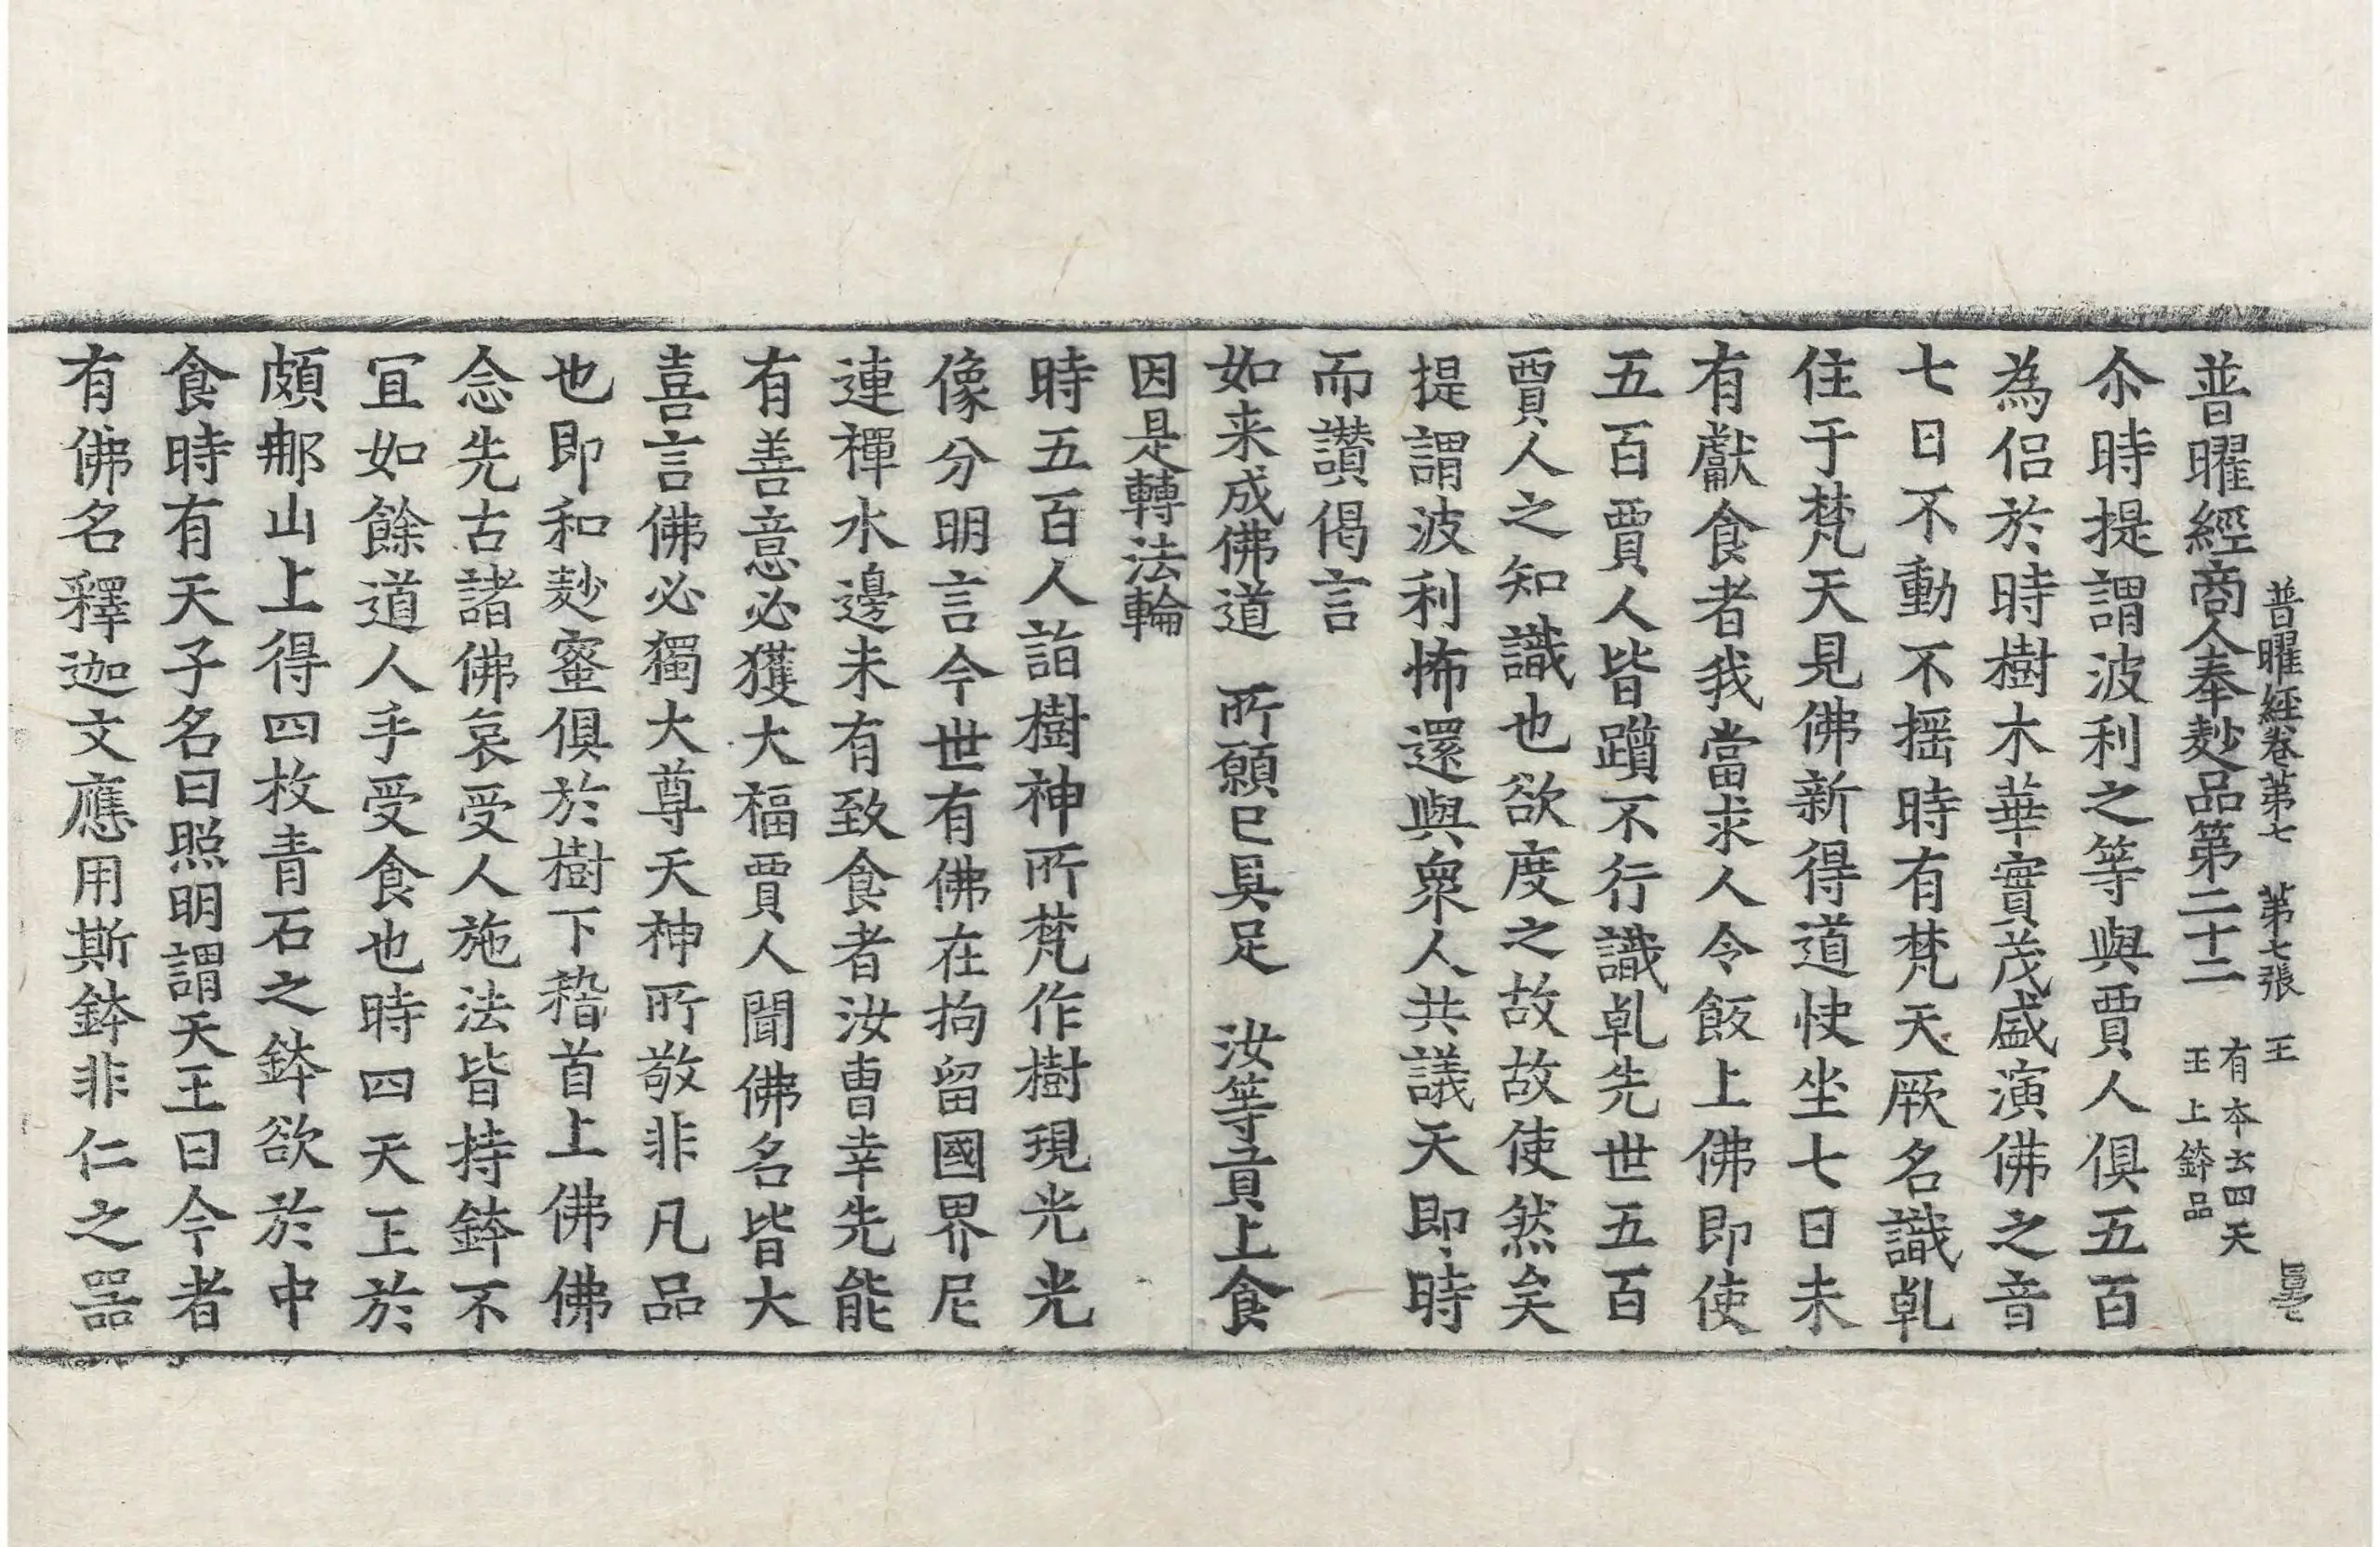 普曜經卷第七　第七張　王
普曜經商人奉麨品第二十二
有本云四天
王上鉢品
尒時提謂波利之等與賈人俱五百
為侶於時樹木華實茂盛演佛之音
七日不動不揺時有梵天厥名識乹
住于梵天見佛新得道快坐七日未
有獻食者我當求人令飯上佛即使
五百賈人皆躓不行識乹先世五百
賈人之知識也欲度之故故使然矣
提謂波利怖還與衆人共議天即時
而讃偈言
如来成佛道　所願已具足　汝等貢上食
因是轉法輪
時五百人詣樹神所梵作樹現光光
像分明言今世有佛在拘留國界尼
連禪水邊未有致食者汝曹幸先能
有善意必獲大福賈人聞佛名皆大
喜言佛必獨大尊天神所敬非凡品
也即和麨蜜俱於樹下稽首上佛佛
念先古諸佛哀受人施法皆持鉢不
冝如餘道人手受食也時四天王於
頗郍山上得四枚青石之鉢欲於中
食時有天子名曰照明謂天王曰今者
有佛名釋迦文應用斯鉢非仁之器